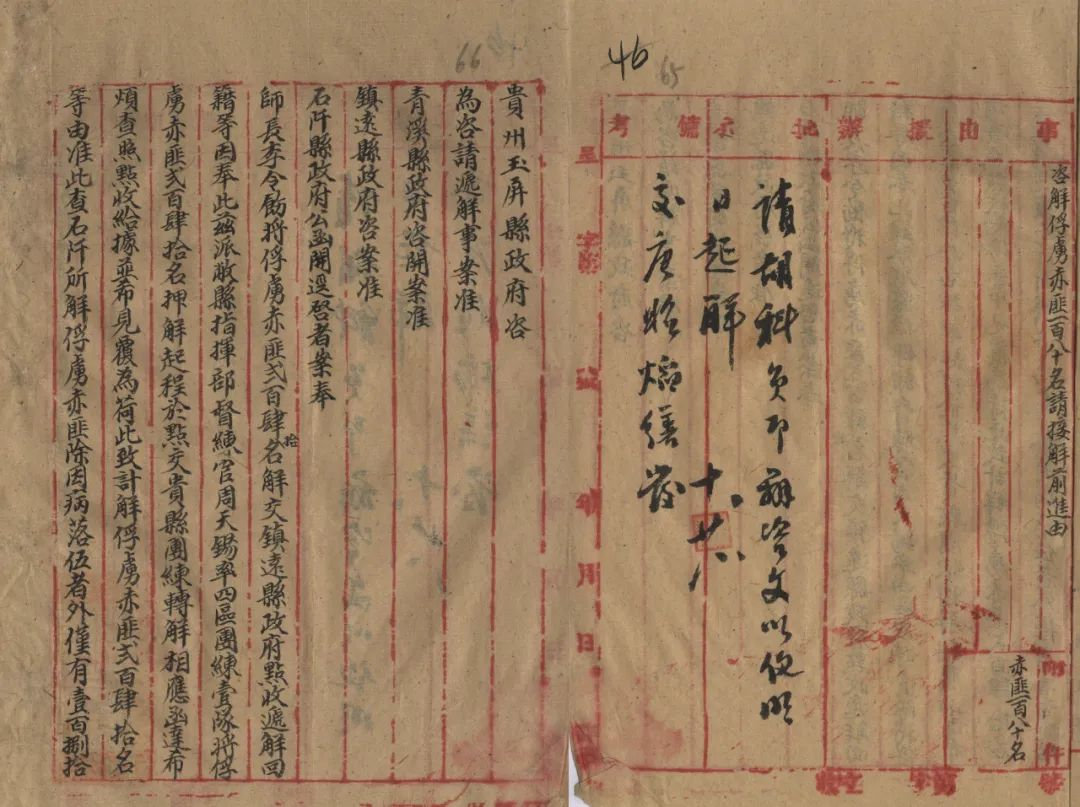 46
65
事由
擬辦
批示
備考
咨解俘虜赤匪一百八十名請接解前進由
附件
赤匪一百八十名
請胡科員即辦咨文以便明
日起解
十、廿八
交唐昭熖繕發
字第
號
月
日
66
貴州玉屏縣政府咨
為咨請遞解事案准
青溪縣政府咨開案准
鎮遠縣政府咨案准
石阡縣政府公函開逕啓者案奉
師長李令飭將俘虜赤匪弍百肆拾名解交鎮遠縣政府點收遞解回
籍等因奉此茲派敝縣指揮部督練官周天錫率四區團練壹隊將俘
虜赤匪弍百肆拾名押解起程於點交貴縣團練轉解相應函達布
煩查照點收給據並希見覆為荷此致計解俘虜赤匪弍百肆拾名
等由准此查石阡所解俘虜赤匪除因病落伍者外僅有壹百捌拾